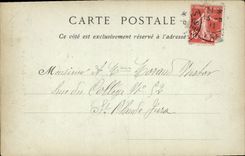 CARTE POSTALE
Ce côté est exclusivement réservé à l'adresse
Monsieur & Mme Morand
Rue du Collège No 52
St Claude Jura